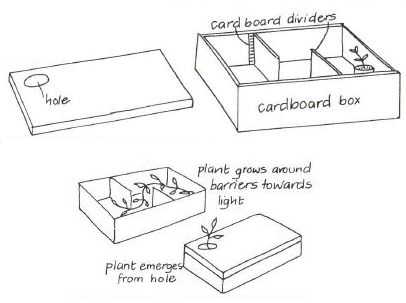 cardboard dividers
hole
cardboard box
plant grows around
barriers towards
light
plant emerges
from hole